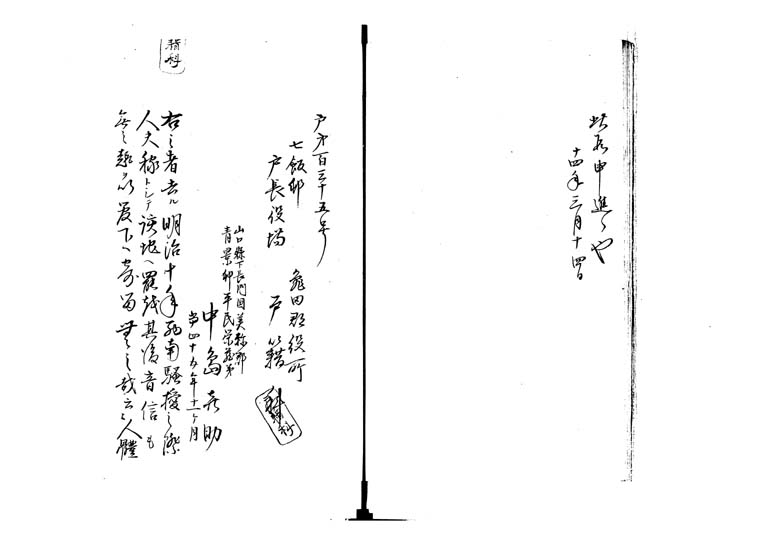 此段申進候也
十四年三月十四日
戸第百三十五号
七飯邨
戸長役場
亀田郡役所
戸籍
山口縣下長門国美祢郡
青景邨平民栄蔵弟
中島喜助
当四十五年十一ヶ月
右之者去ル明治十年西南騒擾之際
人夫稼トシテ該地ヘ罷越其後音信も
無之趣ニ以爰下ヘ寄留無之哉云々人體